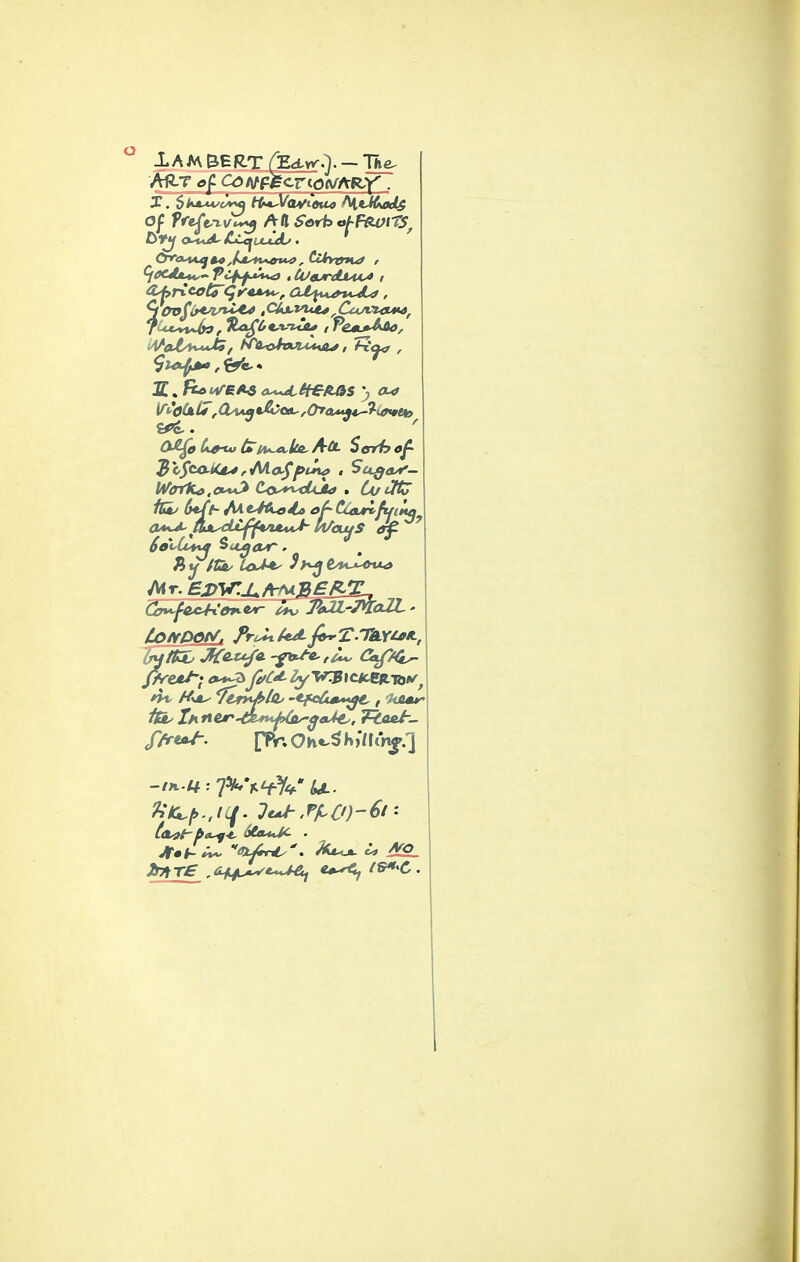 LAMBERT (Edw.). — The
ART of CONFECTIONARY.
I. Shewing the Various Methods
Of Preserving All Sorts of FRUITS,
Dry and Liquid.
Oranges, Lemmons, Citrons,
Golden-Pippins, Wardens,
Apricots Green, Almonds,
Goosberries, Cherries, Currans,
Plumbs, Rasberries, Peaches,
Walnuts, Nectarines, Figs,
Grapes, &c.
II. FLOWERS and HERBS; as
Violets, Angelica, Orange-Flowers,
&c.
Also how to make All Sorts of
Biscakes, Maspins, Sugar-
Works, and Candies. With
the best Methods of Clarifying,
and the different Ways of
boiling Sugar.
By the Late Ingenious
Mr. EDW. LAMBERT,
Confectioner in Pall-Mall.
LONDON, Printed for T. TAYLOR,
by the Meuse-gate, in Castle-
street; and Sold by W. BICKERTON,
in the Temple-exchange, near
the Inner-temple-gate, Fleet-
street. [Pr. One Shilling.]
-in.-4: 7¾" x 4¾" bd.